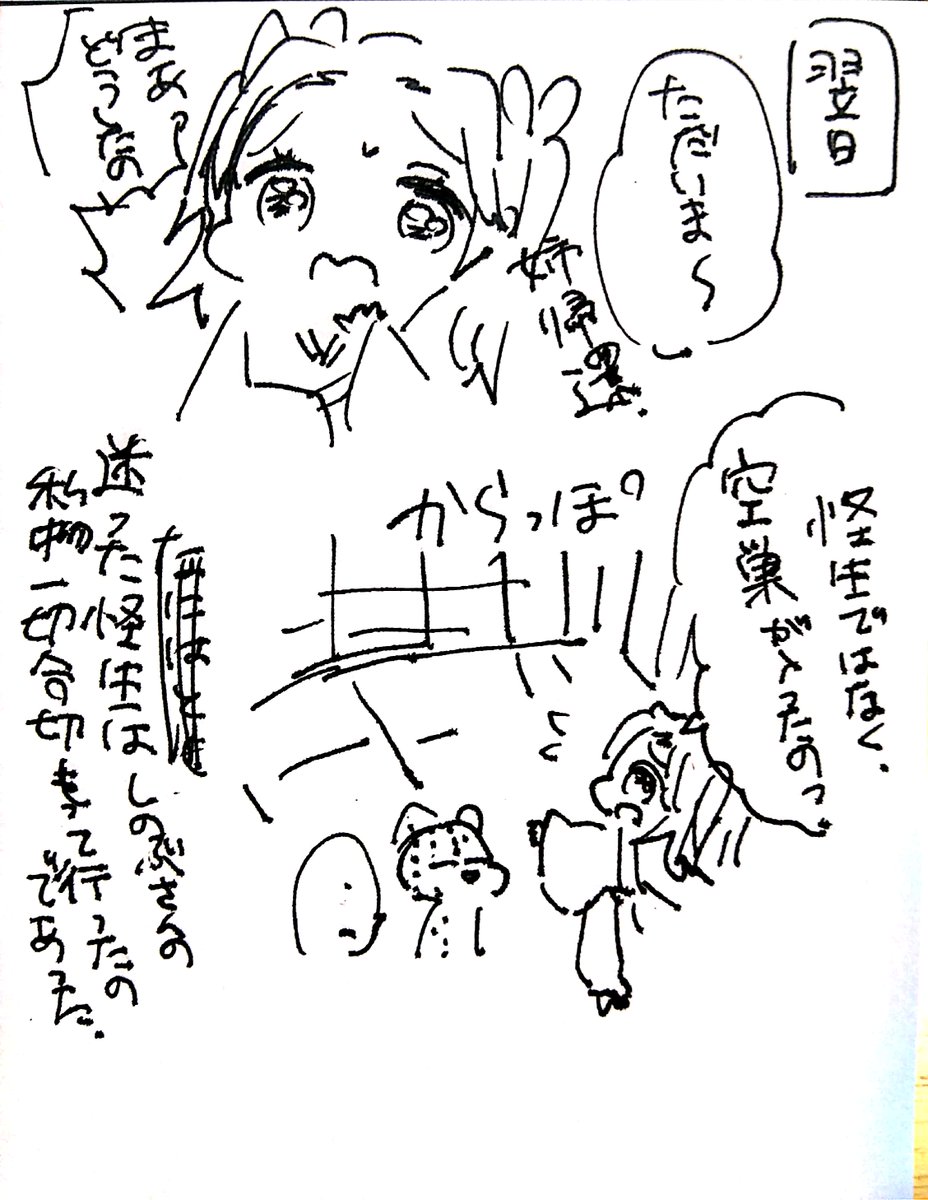 翌日
ただいま〜
姉帰還。
まあっ
どうしたの
怪生ではなく、
空巣が入ったのっ
からっぽ
迷った怪生はしのぶさんの
私物一切合切奪って行ったの
であった。